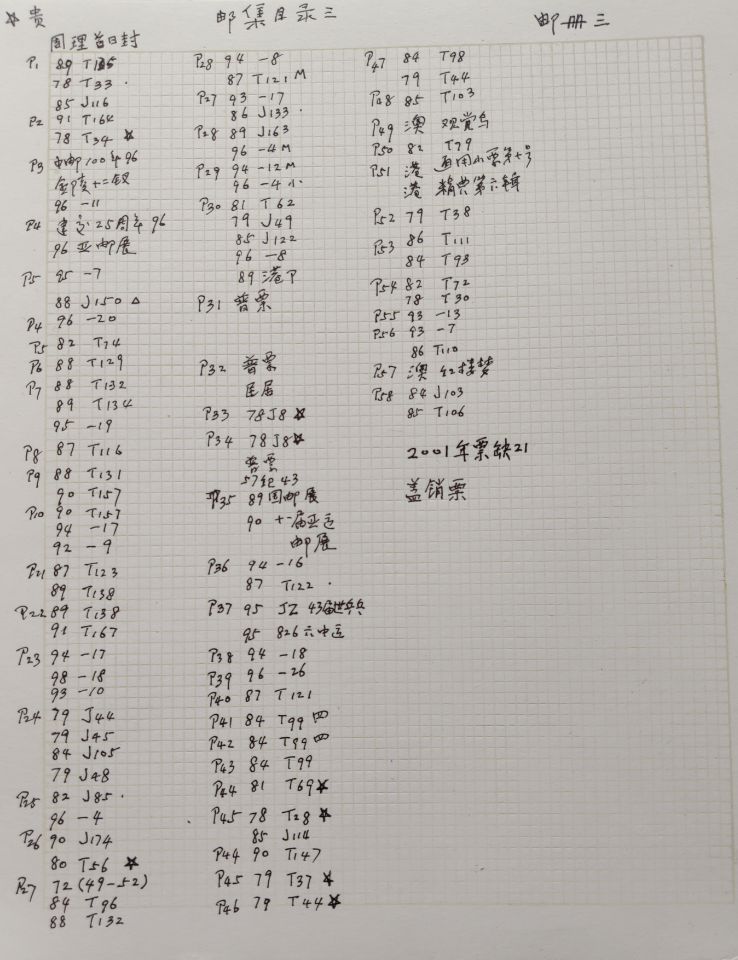 ☆ 贵
邮集目录三
邮册三
周理首日封
P1 89 T135
78 T33 .
85 J116
P2 91 T164
78 T34 ☆
P3 中邮100年96
金陵十二钗
96 -11
P4 建交25周年96
96 亚邮展
P5 95 -7
88 J150 △
P4 96 -20
P5 82 T74
P6 88 T129
P7 88 T132
89 T134
95 -19
P8 87 T116
P9 88 T131
90 T157
P10 90 T157
94 -17
92 -9
P21 87 T123
89 T138
P22 89 T138
91 T167
P23 94 -17
98 -18
93 -10
P24 79 J44
79 J45
84 J105
79 J48
P25 82 J85 .
96 -4
P26 90 J174
80 T56 ☆
P27 72 (49-52)
84 T96
88 T132
P28 94 -8
87 T121 M
P27 93 -17
86 J133 .
P28 89 J163
96 -4M
P29 94 -12M
96 -4小
P30 81 T62
79 J49
85 J122
96 -8
89 港P
P31 普票
P32 普票
民居
P33 78 J8 ☆
P34 78 J8 ☆
普票
57纪43
P35 89 国邮展
90 十一届亚运
邮展
P36 94 -16
87 T122 .
P37 95 JZ 43届世乒兵
95 826 六中运
P38 94 -18
P39 96 -26
P40 87 T121
P41 84 T99 四
P42 84 T99 四
P43 84 T99
P44 81 T69 ☆
P45 78 T28 ☆
85 J114
P44 90 T147
P45 79 T37 ☆
P46 79 T44 ☆
P47 84 T98
79 T44
P48 85 T103
P49 澳 观赏鸟
P50 82 T79
P51 港 通用小票第十号
港 精典第六辑
P52 79 T38
P53 86 T111
84 T93
P54 82 T72
78 T30
P55 93 -13
P56 93 -7
86 T110
P57 澳 红楼梦
P58 84 J103
85 T106
2001年票缺21
盖销票